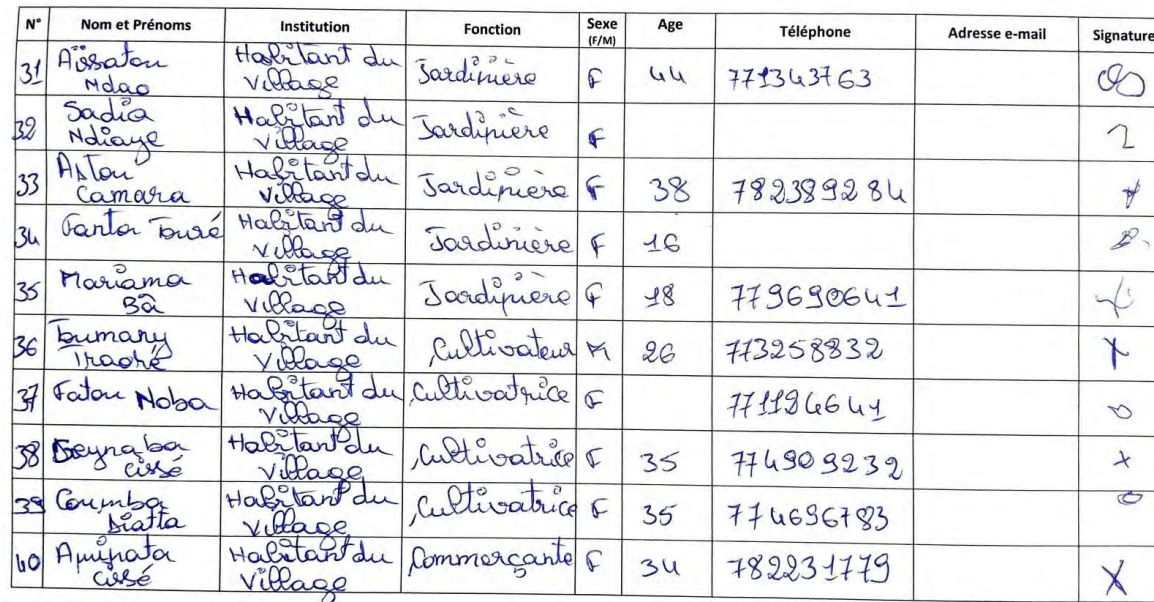 N° Nom et Prénoms Institution Fonction Sexe (F/M) Age Téléphone Adresse e-mail Signature
31 Aïssatou Ndao Habitant du Village Jardinière F 44 771343763
32 Sadia Ndiaye Habitant du Village Jardinière F
33 Astou Camara Habitant du Village Jardinière F 38 782389284
34 Fanta Touré Habitant du Village Jardinière F 16
35 Mariama Bâ Habitant du Village Jardinière F 18 779690641
36 Toumany Traoré Habitant du Village Cultivateur M 26 773258832
37 Fatou Noba Habitant du Village Cultivatrice F 771124641
38 Seynaba Cissé Habitant du Village Cultivatrice F 35 774909232
39 Coumba Diatta Habitant du Village Cultivatrice F 35 774696783
40 Aminata Cissé Habitant du Village Commerçante F 34 782231779